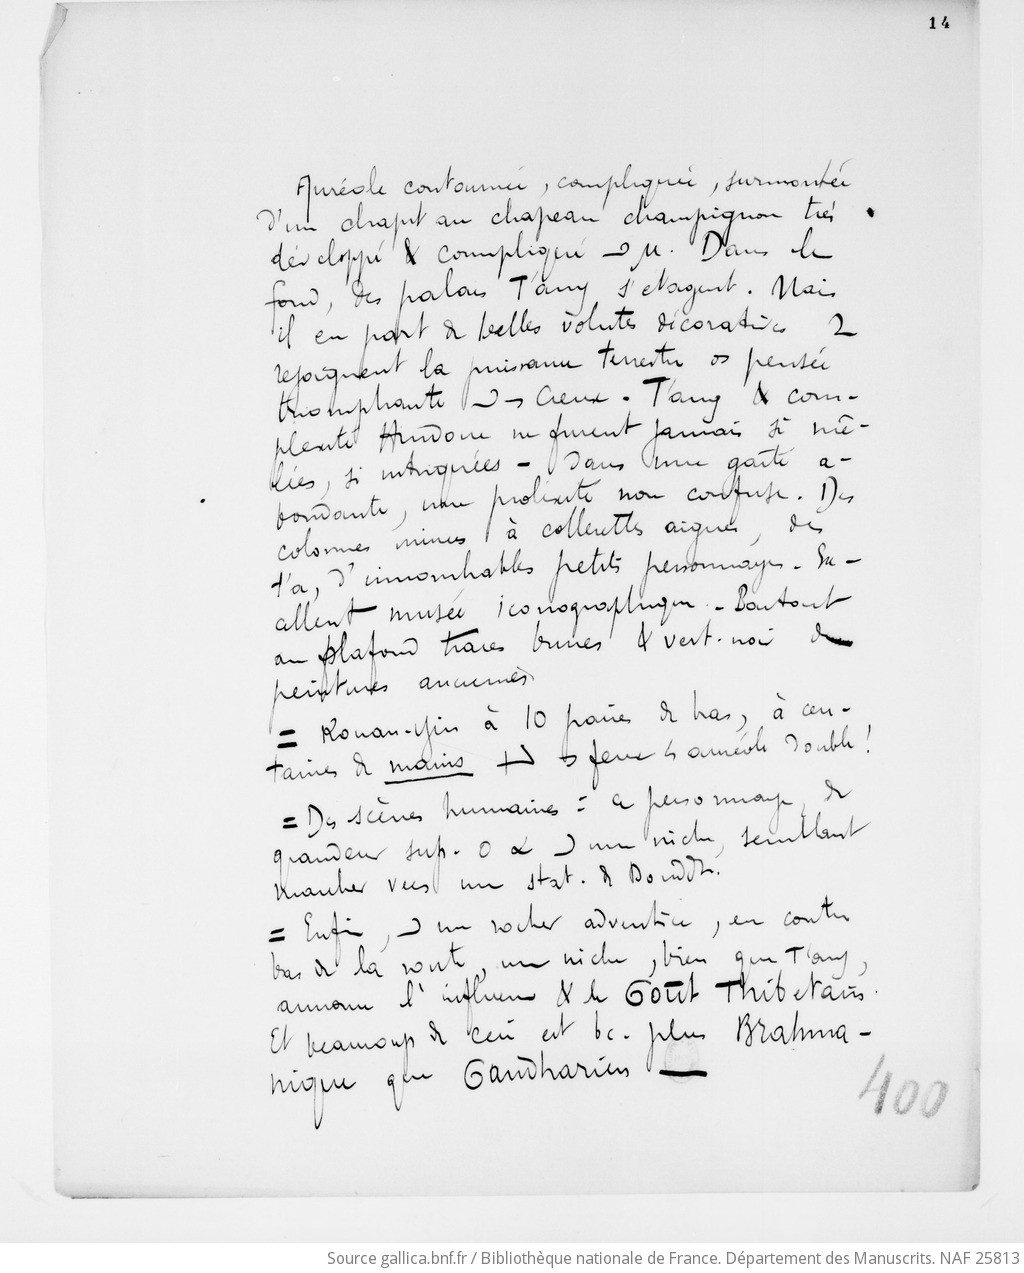 14
Auréole contournée, compliquée, surmontée
d'un chapit au chapeau champignon très
développé & compliqué. Dans le
fond, des palais T'ang s'étagent. Mais
il en part de belles volutes décoratives
rejoignent la puissance terrestre pensée
triomphante cieux. T'ang & com-
plexité Hindoue ne furent jamais si mê-
lées, si intriquées - Dans une gaîté a-
bondante, une prolixité non confuse. Des
colonnes minces à collerettes aigues, des
t'a, d'innombrables petits personnages. Ex-
cellent musée iconographique. - Partout
au plafond traces brunes & vert-noir de
peintures anciennes
= Kouan-Yin à 10 paires de bras, à cen-
taines de mains feux auréole double!
= Des scènes humaines : personnage, de
grandeur sup. une niche, semblant
marcher vers une stat. de Bouddh.
= Enfin, un rocher adventice, en contre
bas de la route, une niche, bien que T'ang,
annonce l'influence & le Goût Thibétains.
Et beaucoup de ceci est bc. plus Brahma-
nique que Gandharien
400
Source gallica.bnf.fr / Bibliothèque nationale de France. Département des Manuscrits. NAF 25813